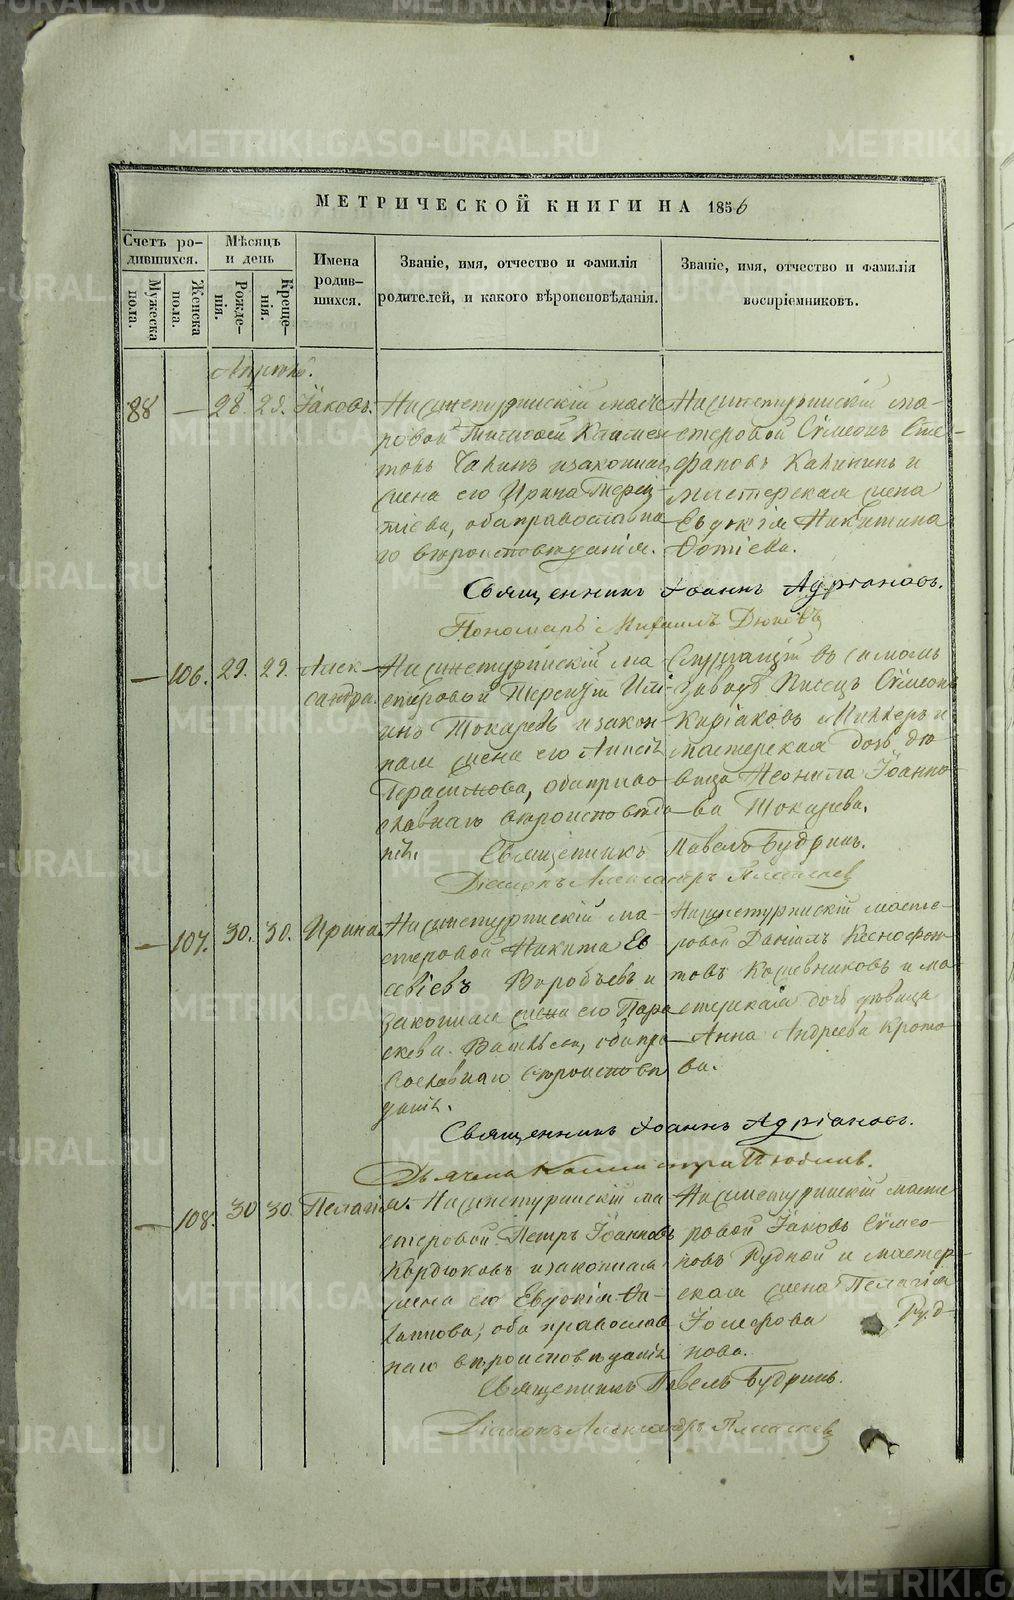 МЕТРИЧЕСКОЙ КНИГИ НА 1856
Счетъ ро-
дившихся.
Мѣсяцъ
и день
Имена
родив-
шихся.
Званіе, имя, отчество и фамилія
родителей, и какого вѣроисповѣданія.
Званіе, имя, отчество и фамилія
воспріемниковъ.
Мужеска
пола.
Женска
пола.
Рожде-
нія.
Креще-
нія.
88
—
28.
Іаковъ.
Нижнетуринскій масте
ровой
и законная
жена его Ирина Терен-
тіева, оба православна
го вѣроисповѣданія.
Нижнетуринскій ма-
стеровой Сѵмеонъ Сте-
фановъ Калининъ и
мастерская жена
Евдокія Никитина
Фотіева.
Священникъ Іоаннъ Адріановъ.
Пономарь Михаилъ
—
106.
29.
29.
Алек-
сандра.
Нижнетуринскій ма-
стеровой Терентій
Токаревъ и закон-
ная жена его
Герасимова, оба право
славнаго вѣроисповѣда
нія.
Служащій въ самомъ
заводѣ Писецъ Сѵмеонъ
Киріаковъ Миллеръ и
мастерская дочь дѣ
вица Неонила Іоанно
ва Токарева.
Священникъ Павелъ Будринъ.
Діаконъ Александръ
—
107.
30.
30.
Ирина
Нижнетуринскій ма-
стеровой Никита Ев
севіевъ Воробьевъ и
законная жена его Пара
скева Васильева, оба пра
вославнаго вѣроисповѣ
данія.
Нижнетуринскій масте-
ровой Даніилъ Ксенофон
товъ Кожевниковъ и ма
стерская дочь дѣвица
Анна Андреева Крото
ва.
Священникъ Іоаннъ Адріановъ.
Дьячекъ
—
108.
30
30
Пелагія.
Нижнетуринскій ма
стеровой Петръ Іоанновъ
Кордюковъ и законная
жена его Евдокія Фи-
липпова, оба православ
наго вѣроисповѣданія
Нижнетуринскій масте
ровой Іаковъ Сѵмео
новъ Рудной и мастер-
ская жена Пелагія
Руд-
нова.
Священникъ Павелъ Будринъ.
Діаконъ Александръ
METRIKI.GASO-URAL.RU